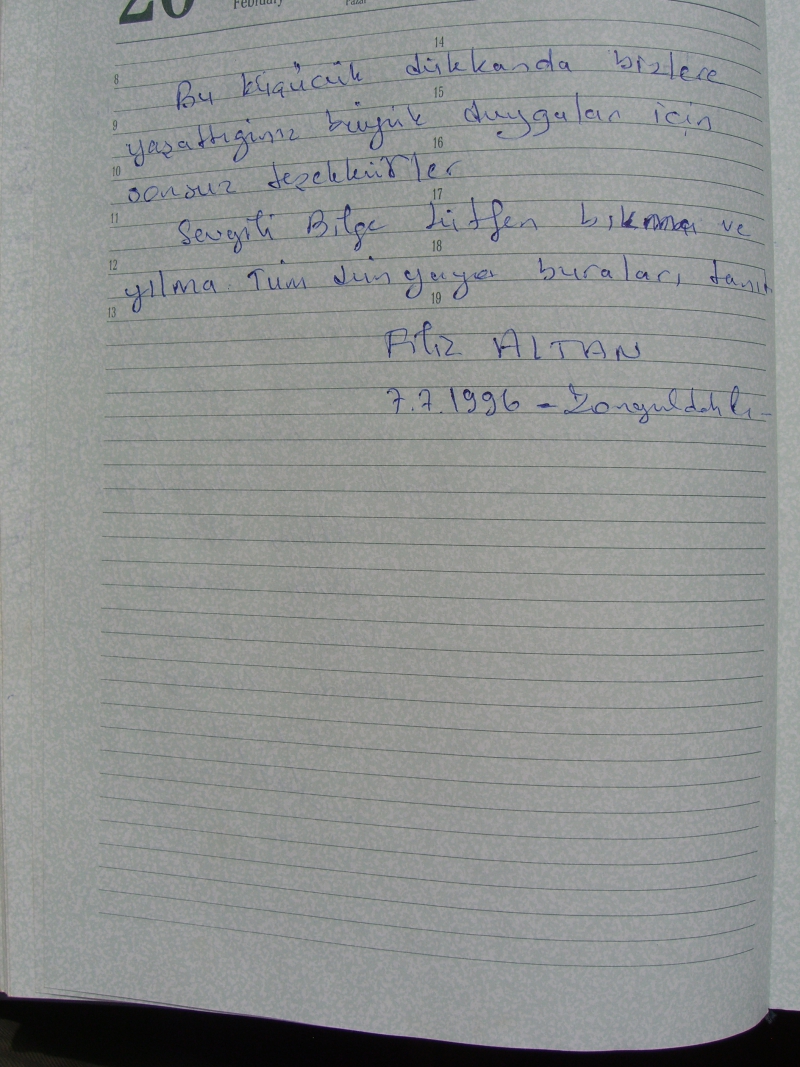 February
14
8 Bu küçücük dükkanda bizlere
15
9 yaşattığınız büyük duygular için
16
10 sonsuz teşekkürler
17
11 Sevgili Bilge lütfen bıkma ve
18
12 yılma. Tüm dünyaya buraları tanıt
19
13
Filiz ALTAN
7.7.1996 - Zonguldaklı-